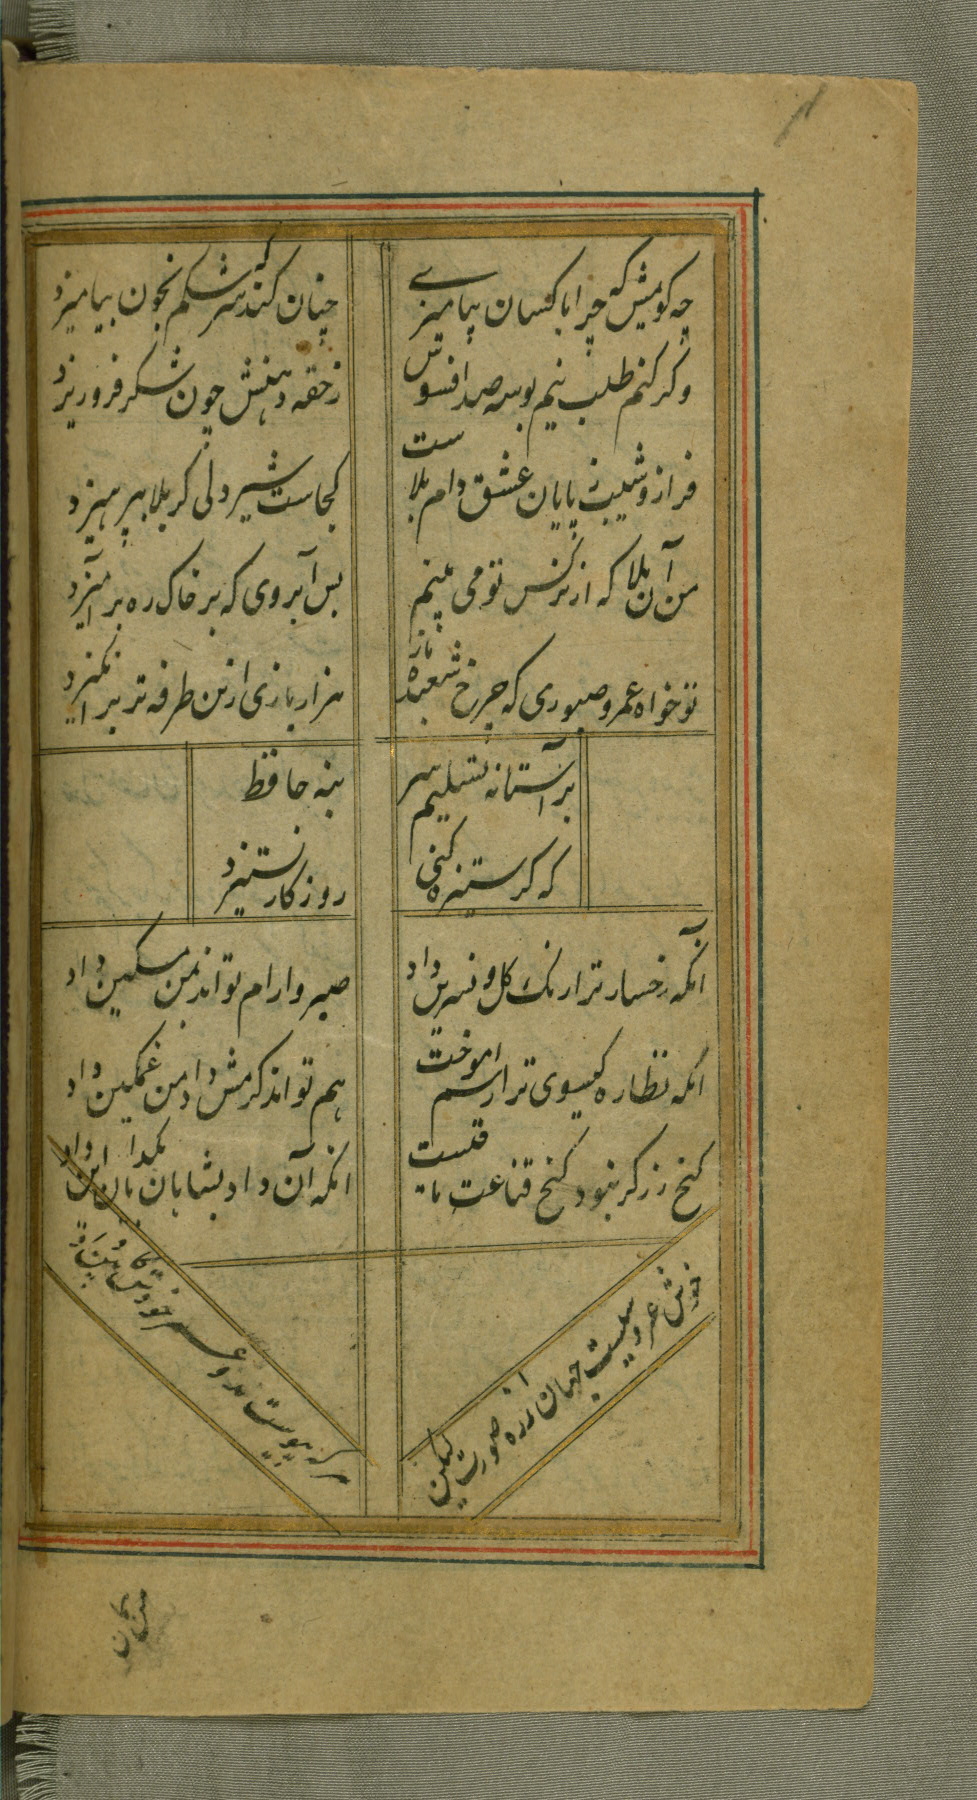 چه کویمش که چرا با کسان بیامیزی
چنان کند که سرشکم بخون بیامیزد
وکر کنم طلب نیم بوسه صد افسوس
زحقه دهنش چون شکر فرو ریزد
فراز وشیب بیابان عشق دام بلا ست
کجاست شیر دلی کز بلا بپرهیزد
من آن بلا که از نرکس تو می بینم
بس آبروی که بر خاک ره برآمیزد
تو خواه عمر و صبوری که چرخ شعبده باز
هزار بازی ازین طرفه تر برانکیزد
بر آستانه تسلیم سر
بنه حافظ
که کر ستیزه کنی
روزکار بستیزد
آنکه رخسار ترا رنک کل و نسرین داد
صبر وارام تواند بمن مسکین داد
انکه نظاره کیسوی ترا رسم اموخت
هم تواند کرمش داد من غمکین داد
کنج زر کر نبود کنج قناعت باقیست
انکه آن داد بشاهان بکدایان این داد
خوش عروسیست جهان از ره صورت لیکن
هر که پیوست بدو عمر خودش کاوین داد